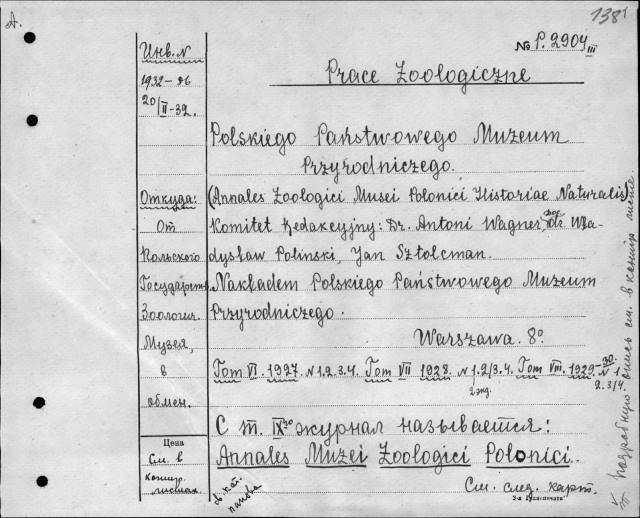 А.
138¹
№ P. 2904 III
Инв. N
1932 - 86
20/II - 32.
Prace Zoologiczne
Polskiego Państwowego Muzeum
Przyrodniczego.
Откуда:
От
Польского
Государств.
Зоологич.
Музея,
в
обмен.
(Annales Zoologici Musei Polonici Historiae Naturalis)
Komitet Redakcyjny: Dr. Antoni Wagner, dr. Wła-
dysław Poliński, Jan Sztolcman.
Nakładem Polskiego Państwowego Muzeum
Przyrodniczego.
Warszawa. 8°
Tom VI. 1927. N 1.2.3.4. Tom VII 1928. N 1.2/3.4. Tom VIII. 1929-30. N 1.
2.3/4.
2 экд.
С т. IX го журнал называется:
Annales Muzei Zoologici Polonici.
Цена
См. в
листах.
См. след. карт.
подробную опись см. в конце